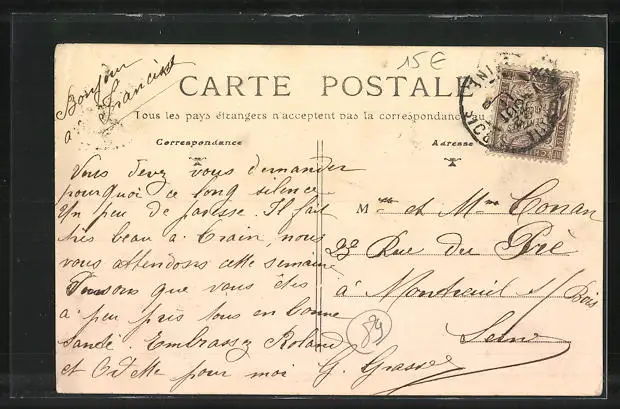 Bonjour
à Francine
15 €
CARTE POSTALE
Tous les pays étrangers n'acceptent pas la correspondance au
Correspondance
Adresse
Vous devez vous demander
pourquoi ce long silence
Un peu de paresse. Il fait
très beau à Crain, nous
vous attendons cette semaine
Pensons que vous êtes
à peu près tous en bonne
santé. Embrassez Roland
et Odette pour moi G. Grasse
M et Mme Conan
23 Rue du Pré
à Montreuil s/ Bois
Seine
89